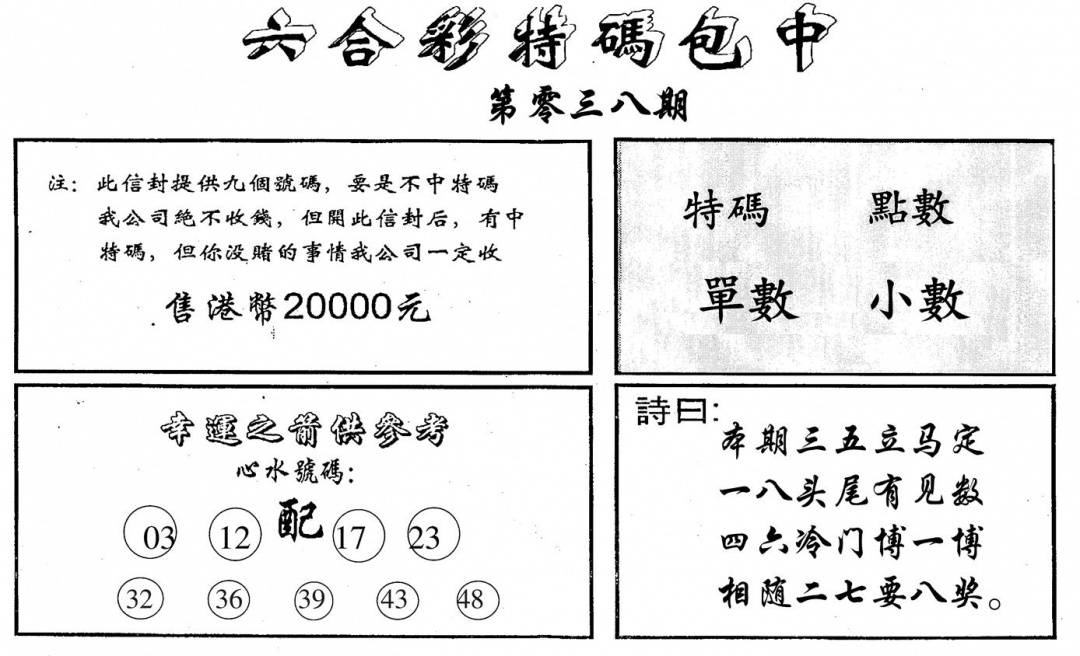 六合彩特碼包中
第零三八期
注：此信封提供九個號碼，要是不中特碼
我公司絕不收錢，但開此信封后，有中
特碼，但你没賭的事情我公司一定收
售港幣20000元
特碼 點數
單數 小數
幸運之箭供參考
心水號碼：
配
03 12 17 23
32 36 39 43 48
詩曰：
本期三五立马定
一八头尾有见数
四六冷门博一博
相随二七要八奖。